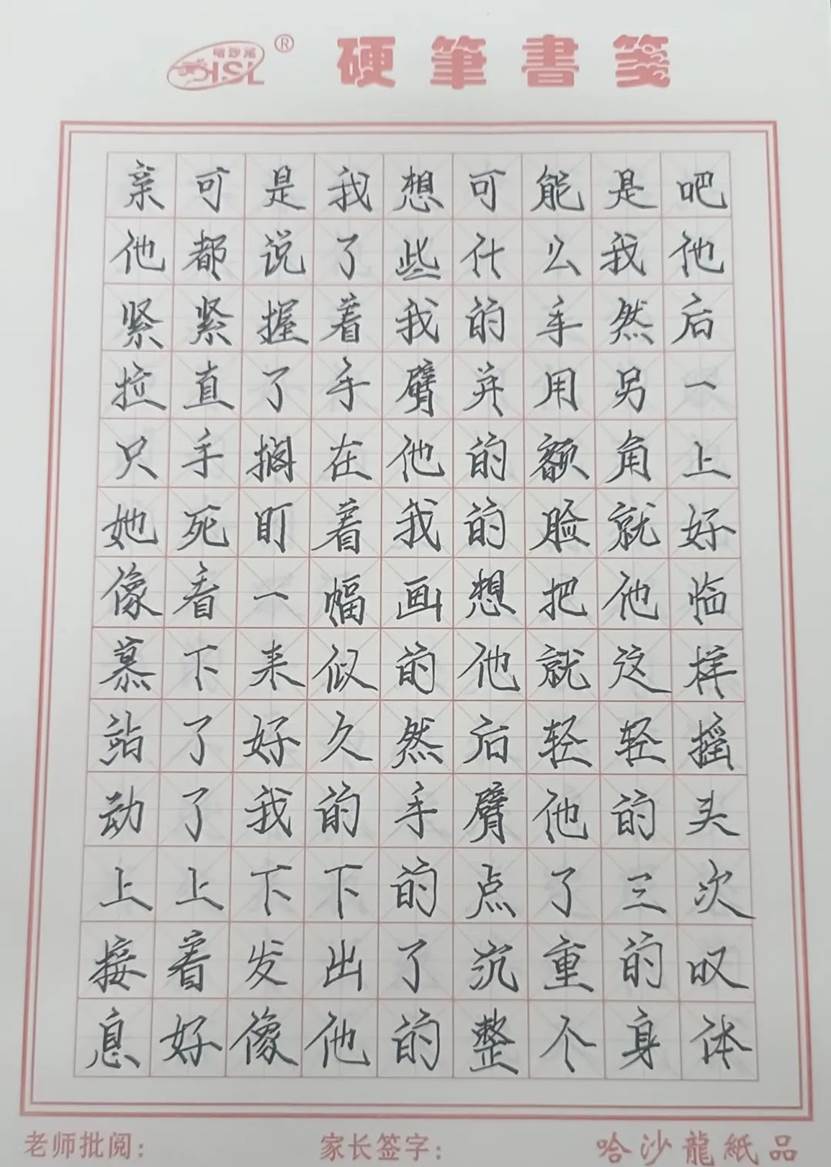 哈沙龍 HSL ® 硬筆書箋
亲可是我想可能是吧
他都说了些什么我他
紧紧握着我的手然后
拉直了手臂并用另一
只手搁在他的额角上
她死盯着我的脸就好
像看一幅画想把他临
慕下来似的他就这样
站了好久然后轻轻摇
动了我的手臂他的头
上上下下的点了三次
接着发出了沉重的叹
息好像他的整个身体
老师批阅： 家长签字： 哈沙龍紙品